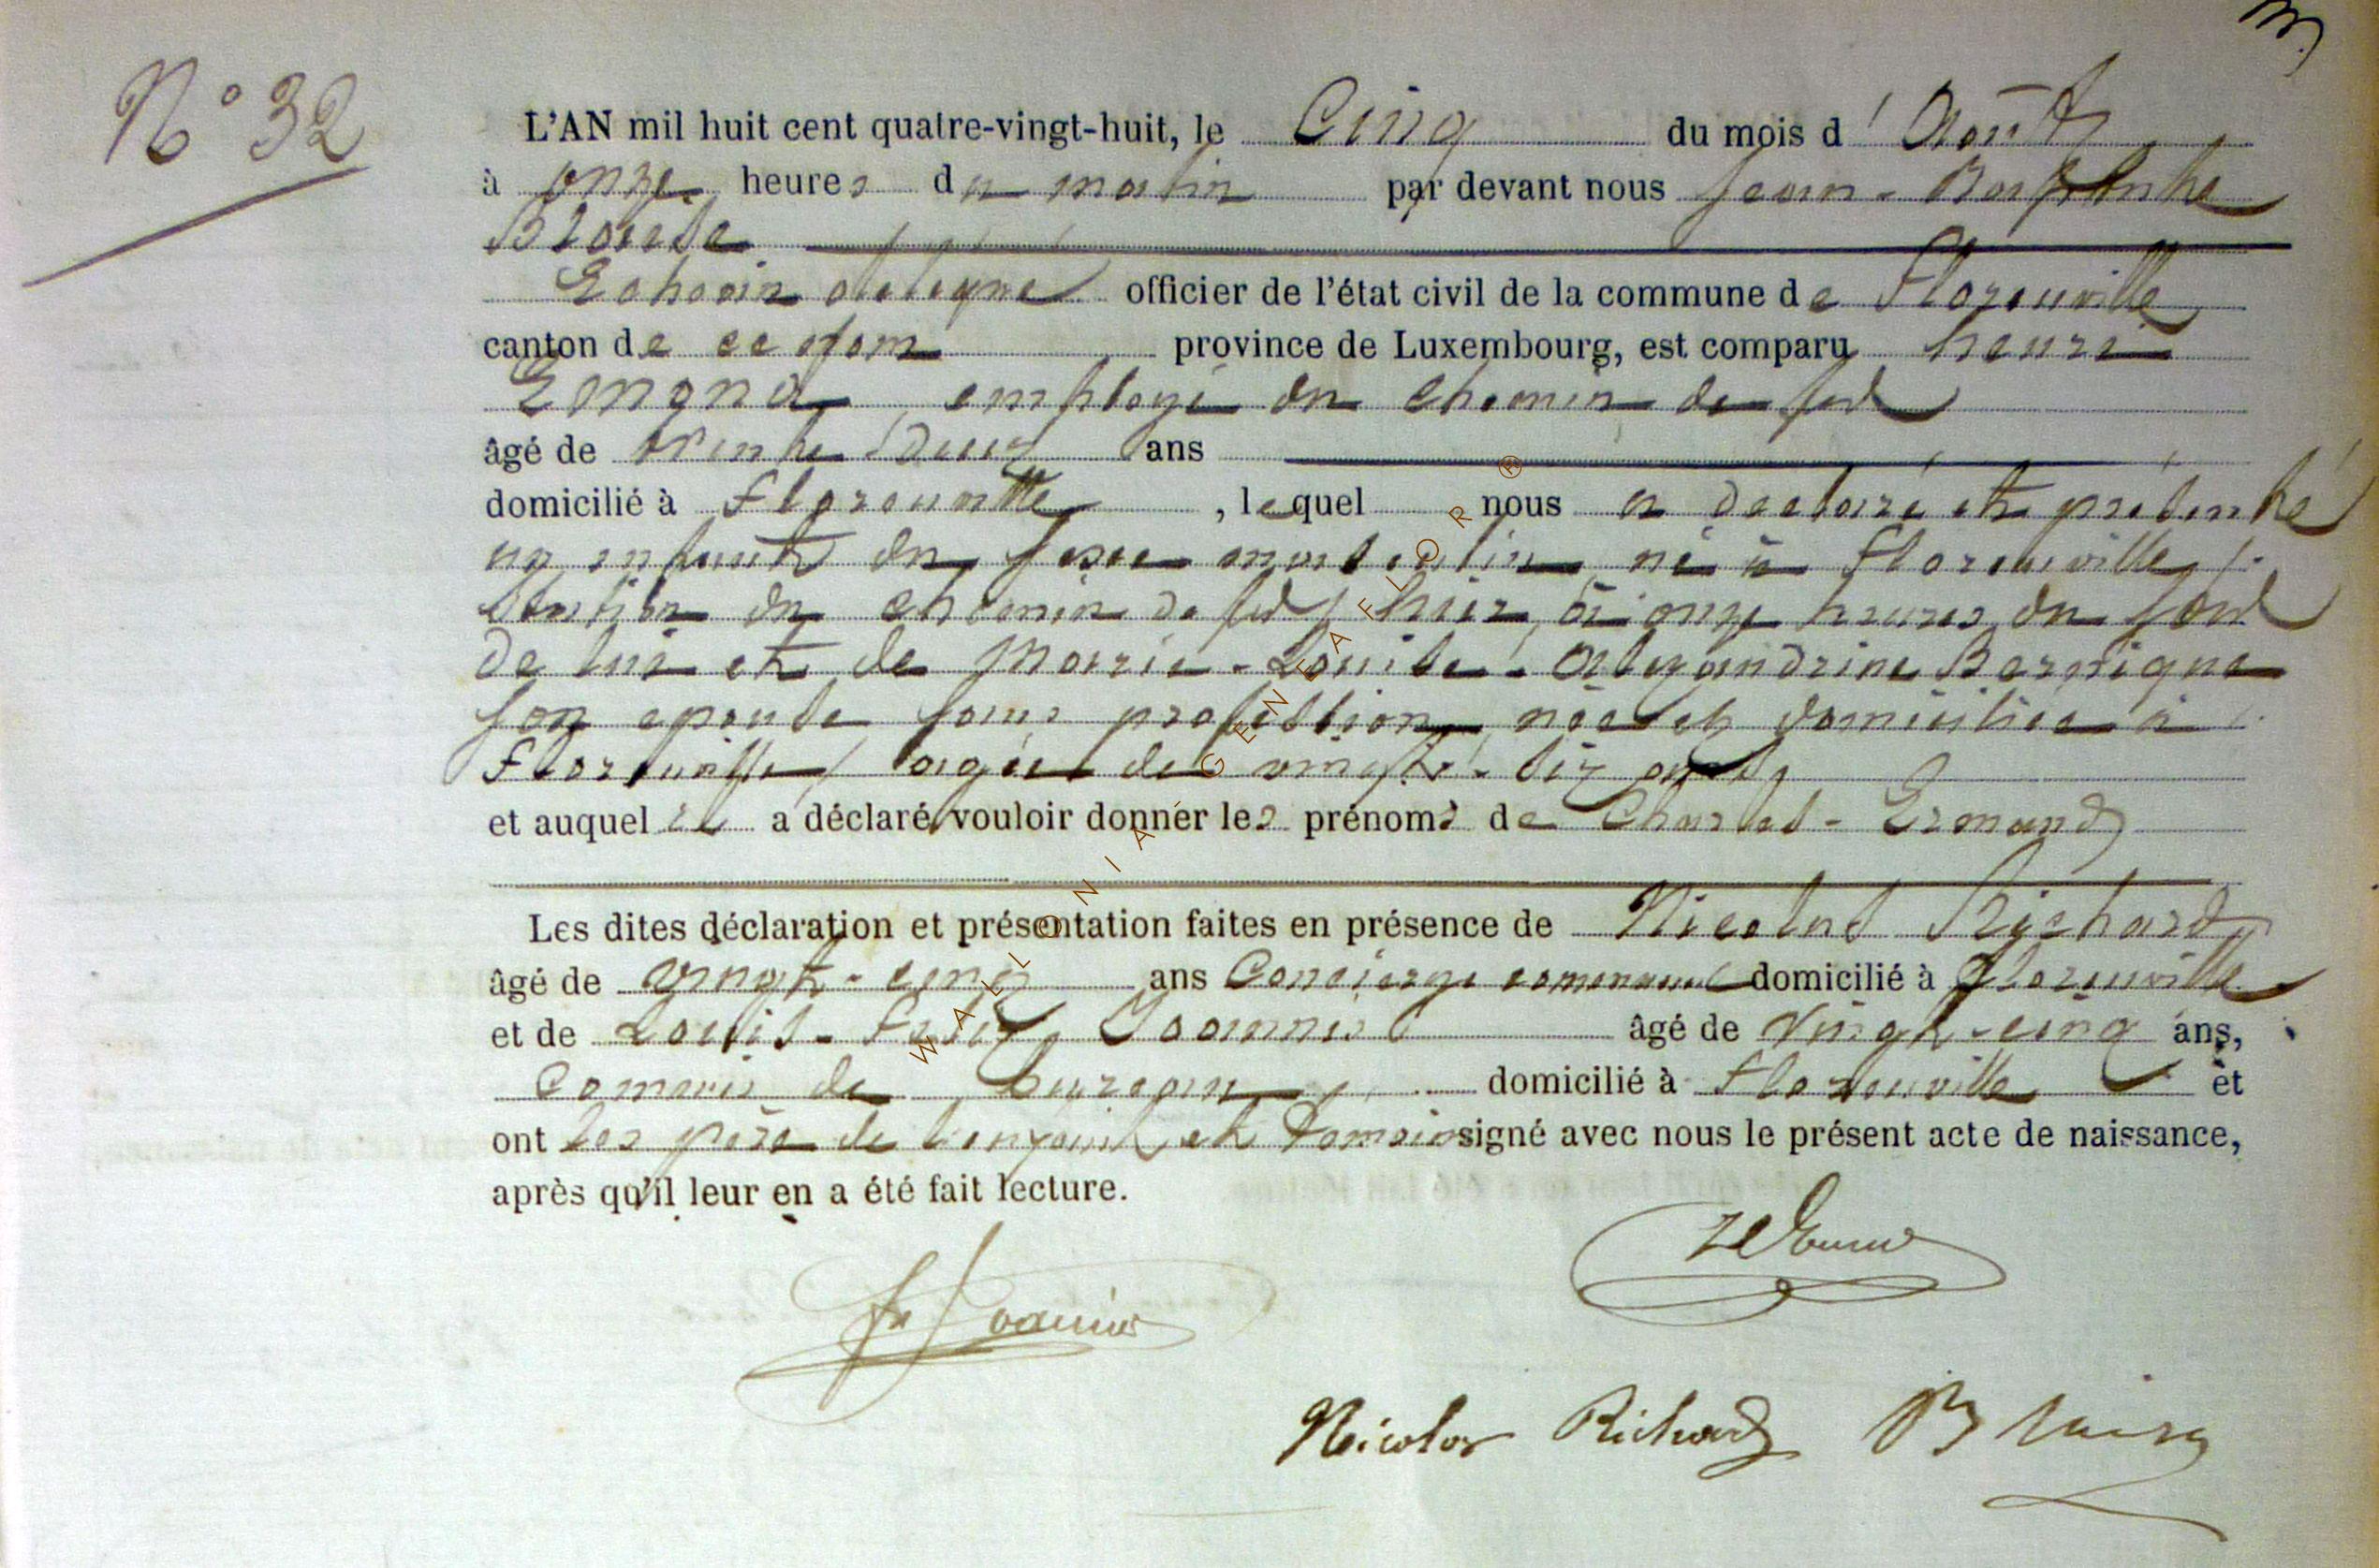 N° 32
L'AN mil huit cent quatre-vingt-huit, le Cinq du mois d'Août
à onze heures du matin par devant nous Jean-Baptiste
Blaise
Echevin délégué officier de l'état civil de la commune de Florenville
canton de ce nom province de Luxembourg, est comparu henri
employé du chemin de fer
âgé de trente-deux ans
domicilié à Florenville, lequel nous a declaré et présenté
un enfant du sexe masculin né à Florenville
Station du chemin de fer hier, à onze heures du soir
de lui et de Marie-Louise-Alexandrine Bernique
son epouse sans profession, née et domiciliée à
Florenville, agée de vingt-six ans
et auquel il a déclaré vouloir donner les prénoms de Charles-Ermand
Les dites déclaration et présentation faites en présence de Nicolas Richard
âgé de vingt-cinq ans Concierge communal domicilié à Florenville
et de Louis-Felix Joannes âgé de Vingt-cinq ans,
Commis de bureau domicilié à Florenville et
ont les père de l'enfant et temoins signé avec nous le présent acte de naissance,
après qu'il leur en a été fait lecture.
Nicolas Richard
WALLONIA GENEAFLOR ®